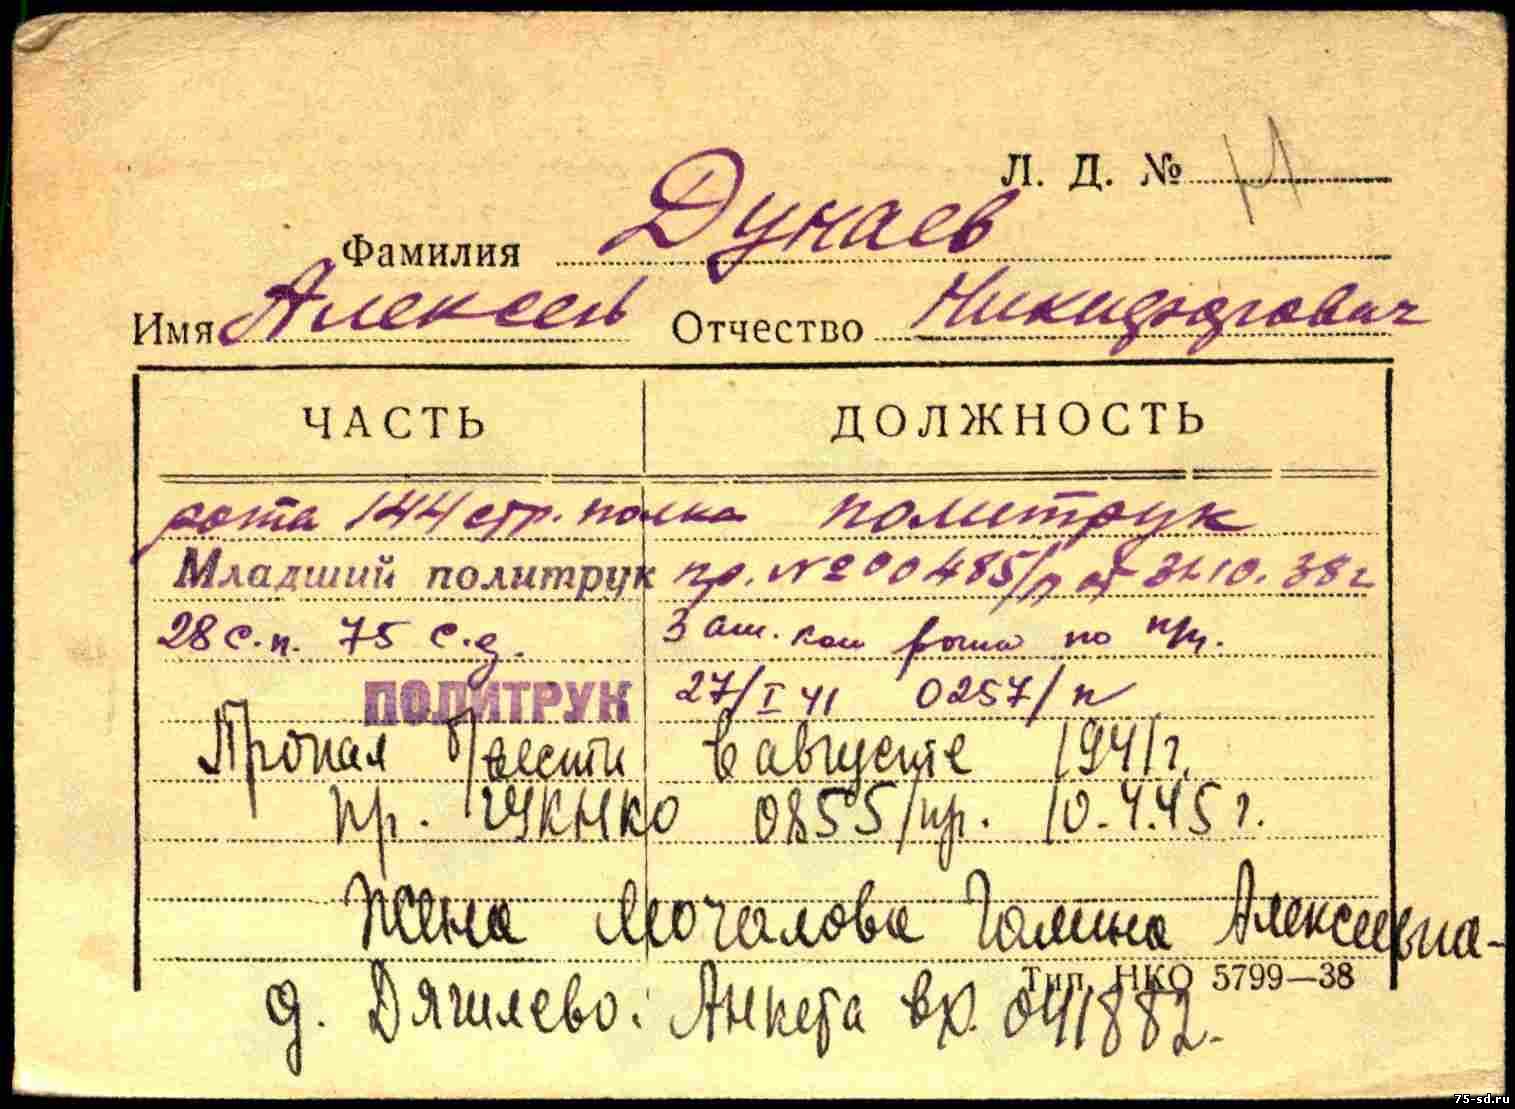 Л. Д. №
Фамилия Дунаев
Имя Алексей Отчество Никифорович
ЧАСТЬ ДОЛЖНОСТЬ
рота 144 стр. полка политрук
Младший политрук пр. № 00485/п от 31.10.38 г
28 с.п. 75 с.д. Заш. ком роты по пр.
ПОЛИТРУК 27/I 41 0257/п
Пропал б/вести в августе 1941 г.
пр. ГУКНКО 0855/пр. 10.4.45 г.
Жена Мочалова Галина Алексеевна-
Тип. НКО 5799—38
д. Дягилево. Анкета вх. 041882.
75-sd.ru